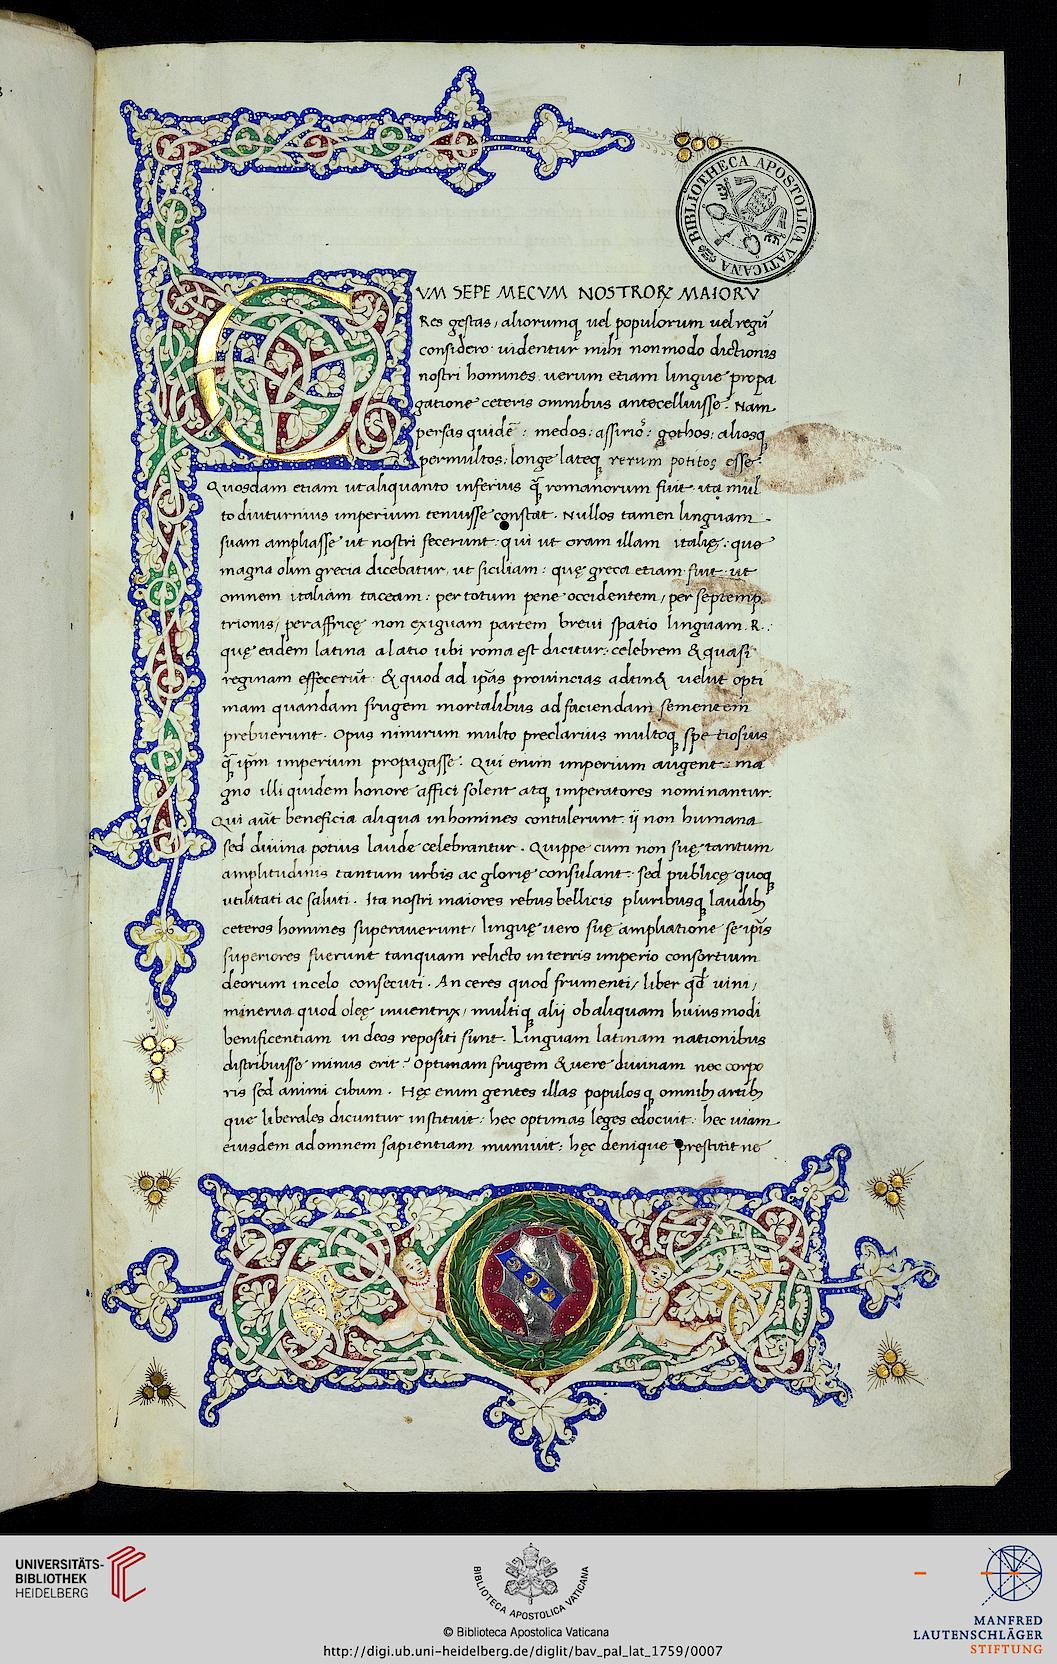 1
BIBLIOTHECA APOSTOLICA VATICANA
CVM SEPE MECVM NOSTRORꝜ MAIORV
Res gestas, aliorumq; uel populorum uel regū
considero uidentur mihi non modo dictionis
nostri homines uerum etiam lingue propa
gatione ceteris omnibus antecelluisse. Nam
persas quidē: medos: assirioꝜ: gothos: aliosq;
permultos: longe lateq; rerum potitos esse:
Quosdam etiam ut aliquanto inferius q̄ romanorum fuit ita mul
to diuturnius imperium tenuisse constat. Nullos tamen linguam
suam ampliasse ut nostri fecerunt: qui ut oram illam italię: que
magna olim grecia dicebatur, ut siciliam: quę greca etiam fuit, ut
omnem italiam taceam: per totum pene occidentem, per septemp
trionis, per affricę non exiguam partem breui spatio linguam .R.:
quę eadem latina a latio ubi roma est dicitur: celebrem & quasi
reginam effecerūt. & quod ad ip̄as prouincias adtinꝫ uelut opti
mam quandam frugem mortalibus ad faciendam sementem
prebuerunt. Opus nimirum multo preclarius multoq; spetiosius
q̄ ip̄m imperium propagasse. Qui enim imperium augent: ma
gno illi quidem honore affici solent atq; imperatores nominantur.
Qui aūt beneficia aliqua in homines contulerunt ii non humana
sed diuina potius laude celebrantur. Quippe cum non suę tantum
amplitudinis tantum urbis ac glorię consulant: sed publicę quoq;
utilitati ac saluti. Ita nostri maiores rebus bellicis pluribusq; laudibꝫ
ceteros homines superauerunt, linguę uero suę ampliatione se ip̄is
superiores fuerunt tanquam relicto in terris imperio consortium
deorum in celo consecuti. An ceres quod frumenti, liber qd̄ uini,
minerua quod oleę inuentrix, multiq; alii ob aliquam huiusmodi
benificentiam in deos repositi sunt. Linguam latinam nationibus
distribuisse minus erit? Optimam frugem & uere diuinam nec corpo
ris sed animi cibum. Hęc enim gentes illas populosq; omnibꝫ artibꝫ
que liberales dicuntur instituit: hec optimas leges edocuit: hec uiam
eiusdem ad omnem sapientiam muniuit: hęc denique prestitit ne
UNIVERSITÄTS-
BIBLIOTHEK
HEIDELBERG
BIBLIOTECA APOSTOLICA VATICANA
© Biblioteca Apostolica Vaticana
http://digi.ub.uni-heidelberg.de/diglit/bav_pal_lat_1759/0007
MANFRED
LAUTENSCHLÄGER
STIFTUNG